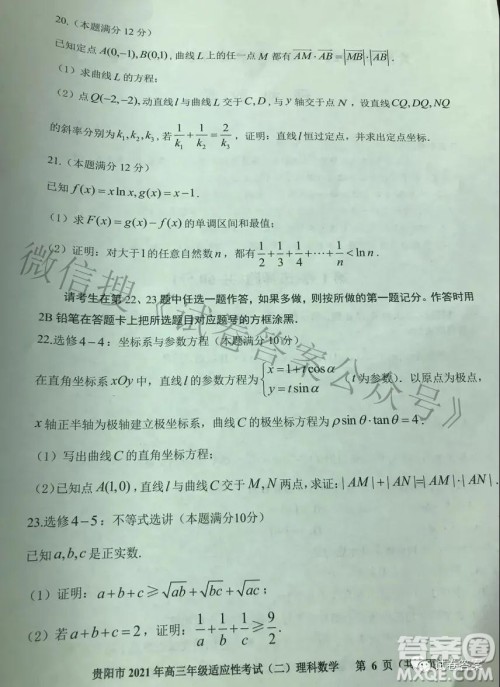 20.（本题满分 12 分）
已知定点 A(0,−1), B(0,1), 曲线 L 上的任一点 M 都有 \overrightarrow{AM}·\overrightarrow{AB}=|\overrightarrow{MB}|·|\overrightarrow{AB}|.
（1）求曲线 L 的方程；
（2）点 Q(−2,−2), 动直线 l 与曲线 L 交于 C, D, 与 y 轴交于点 N，设直线 CQ, DQ, NQ
的斜率分别为 k₁, k₂, k₃, 若 1/k₁ + 1/k₂ = 2/k₃，证明：直线 l 恒过定点，并求出定点坐标.
21.（本题满分 12 分）
已知 f(x)=x ln x, g(x)=x−1.
（1）求 F(x)=g(x)−f(x) 的单调区间和最值；
（2）证明：对大于 1 的任意自然数 n，都有 1/2+1/3+1/4+⋯+1/n<ln n.
请考生在第 22、23 题中任选一题作答，如果多做，则按所做的第一题记分。作答时用
2B 铅笔在答题卡上把所选题目对应题号的方框涂黑.
22.选修 4－4：坐标系与参数方程（本题满分 10 分）
在直角坐标系 xOy 中，直线 l 的参数方程为 {x=1+t cos α, y=t sin α （t 为参数）. 以原点为极点，
x 轴正半轴为极轴建立极坐标系，曲线 C 的极坐标方程为 ρ sin θ·tan θ=4.
（1）写出曲线 C 的直角坐标方程；
（2）已知点 A(1,0)，直线 l 与曲线 C 交于 M, N 两点，求证：|AM|+|AN|=|AM|·|AN|.
23.选修 4－5：不等式选讲（本题满分10分）
已知 a,b,c 是正实数.
（1）证明：a+b+c≥√ab+√bc+√ac；
（2）若 a+b+c=2，证明：1/a+1/b+1/c≥9/2.
贵阳市 2021 年高三年级适应性考试（二）理科数学 第 6 页（共
微信搜《试卷答案公众号》
答案圈
MXQE.COM
试卷答案